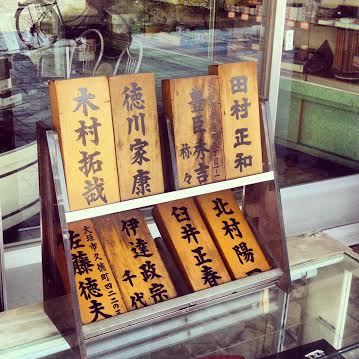 田村正和
豊臣秀吉
祢々
徳川家康
木村拓哉
北村陽
臼井正春
伊達政宗
千代
大垣市久徳町四二ノ二
佐藤徳夫